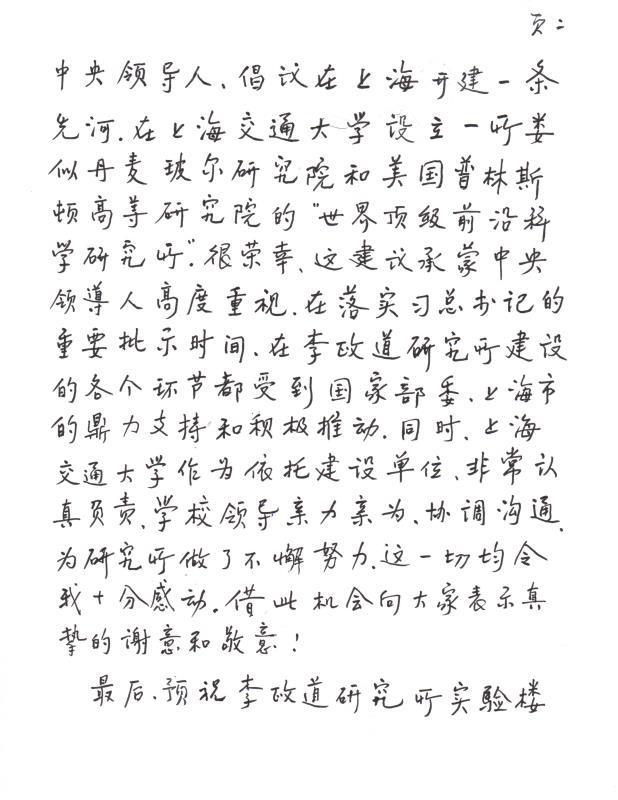 页二
中央领导人、倡议在上海开建一条
先河.在上海交通大学设立一所娄
似丹麦玻尔研究院和美国普林斯
顿高等研究院的“世界顶级前沿科
学研究所”.很荣幸、这建议承蒙中央
领导人高度重视.在落实习总书记的
重要批示时间、在李政道研究所建设
的各个环节都受到国家部委、上海市
的鼎力支持和积极推动.同时、上海
交通大学作为依托建设单位、非常认
真负责、学校领导亲力亲为、协调沟通、
为研究所做了不懈努力.这一切均令
我十分感动.借此机会向大家表示真
挚的谢意和敬意!
最后、预祝李政道研究所实验楼